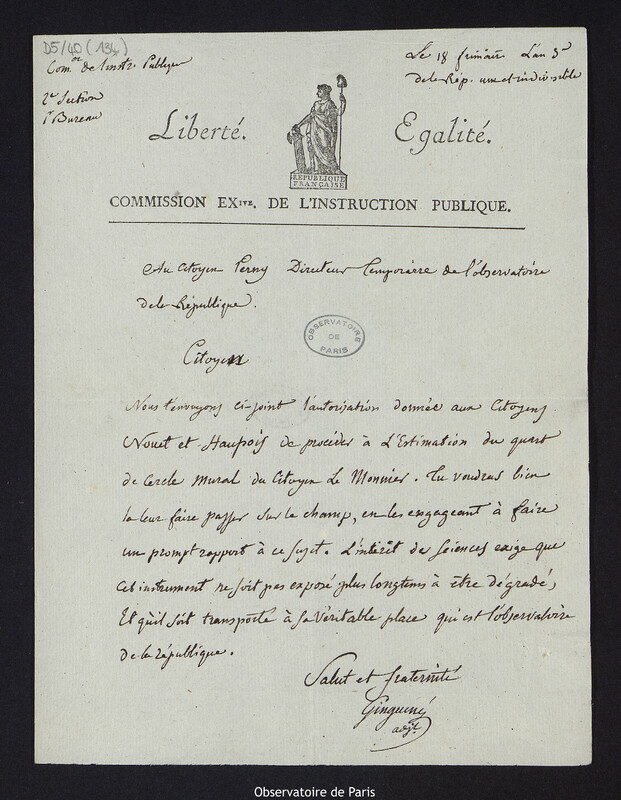 D5/40 (134)
Com.on de l'instr. Publique
2e Section
1r Bureau
Le 18 frimaire L'an 3e
de la Rép. une et indivisible
Liberté. Egalité.
REPUBLIQUE
FRANÇAISE
COMMISSION EXIVE. DE L'INSTRUCTION PUBLIQUE.
Au Citoyen Perny Directeur Temporaire de l'observatoire
de la République.
OBSERVATOIRE
DE
PARIS
Citoyen
Nous t'envoyons ci-joint l'autorisation donnée aux Citoyens
Nouet et Haupois de procéder à L'Estimation du quart
de Cercle mural du Citoyen Le Monnier. Tu voudras bien
la leur faire passer sur le champ, en les engageant à faire
un prompt rapport à ce sujet. L'intérêt de sciences exige que
cet instrument ne soit pas exposé plus longtems à être dégradé,
Et qu'il soit transporté à sa véritable place qui est l'observatoire
de la république.
Salut et fraternité
Ginguené
adjt.
Observatoire de Paris